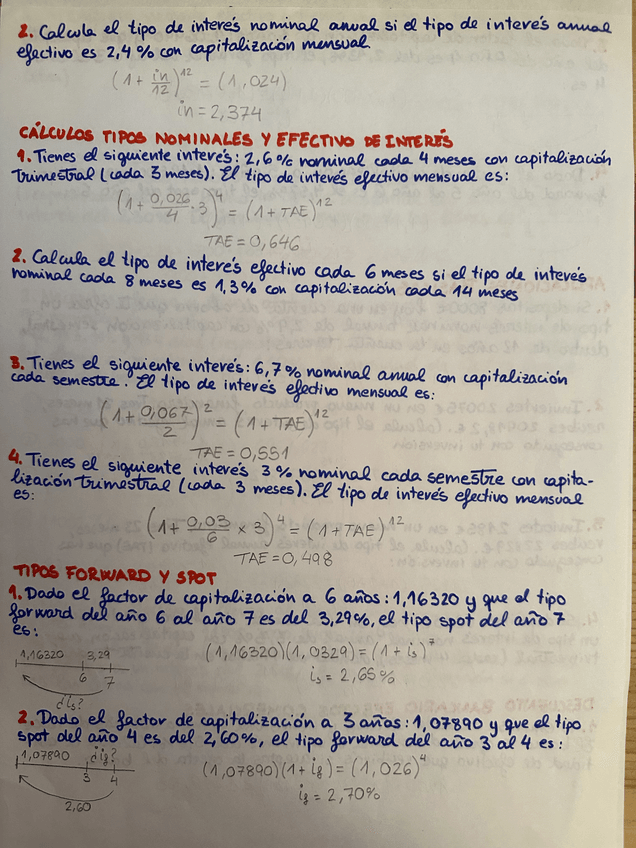 2. Calcula el tipo de interés nominal anual si el tipo de interés anual
efectivo es 2,4% con capitalización mensual.
(1 + in/12)^12 = (1,024)
in = 2,374
CÁLCULOS TIPOS NOMINALES Y EFECTIVO DE INTERÉS
1. Tienes el siguiente interés: 2,6% nominal cada 4 meses con capitalización
trimestral (cada 3 meses). El tipo de interés efectivo mensual es:
(1 + 0,026/4 · 3)^4 = (1 + TAE)^12
TAE = 0,646
2. Calcula el tipo de interés efectivo cada 6 meses si el tipo de interés
nominal cada 8 meses es 1,3% con capitalización cada 14 meses
3. Tienes el siguiente interés: 6,7% nominal anual con capitalización
cada semestre. El tipo de interés efectivo mensual es:
(1 + 0,067/2)^2 = (1 + TAE)^12
TAE = 0,551
4. Tienes el siguiente interés 3% nominal cada semestre con capita-
lización trimestral (cada 3 meses). El tipo de interés efectivo mensual
es:
(1 + 0,03/6 × 3)^4 = (1 + TAE)^12
TAE = 0,498
TIPOS FORWARD Y SPOT
1. Dado el factor de capitalización a 6 años: 1,16320 y que el tipo
forward del año 6 al año 7 es del 3,29%, el tipo spot del año 7
es:
1,16320 3,29
6 7
¿is?
(1,16320)(1,0329) = (1 + is)^7
is = 2,65%
2. Dado el factor de capitalización a 3 años: 1,07890 y que el tipo
spot del año 4 es del 2,60%, el tipo forward del año 3 al 4 es:
1,07890 ¿if?
3 4
2,60
(1,07890)(1 + if) = (1,026)^4
if = 2,70%